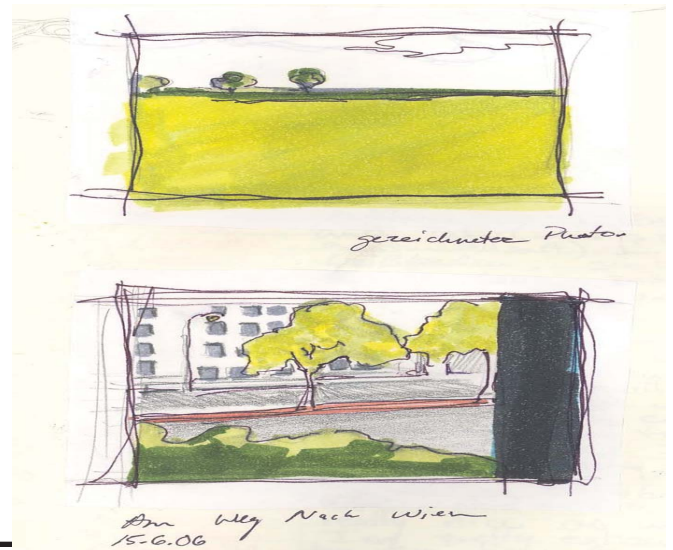 gezeichnetes Photo
Am Weg Nach Wien
15-6.06